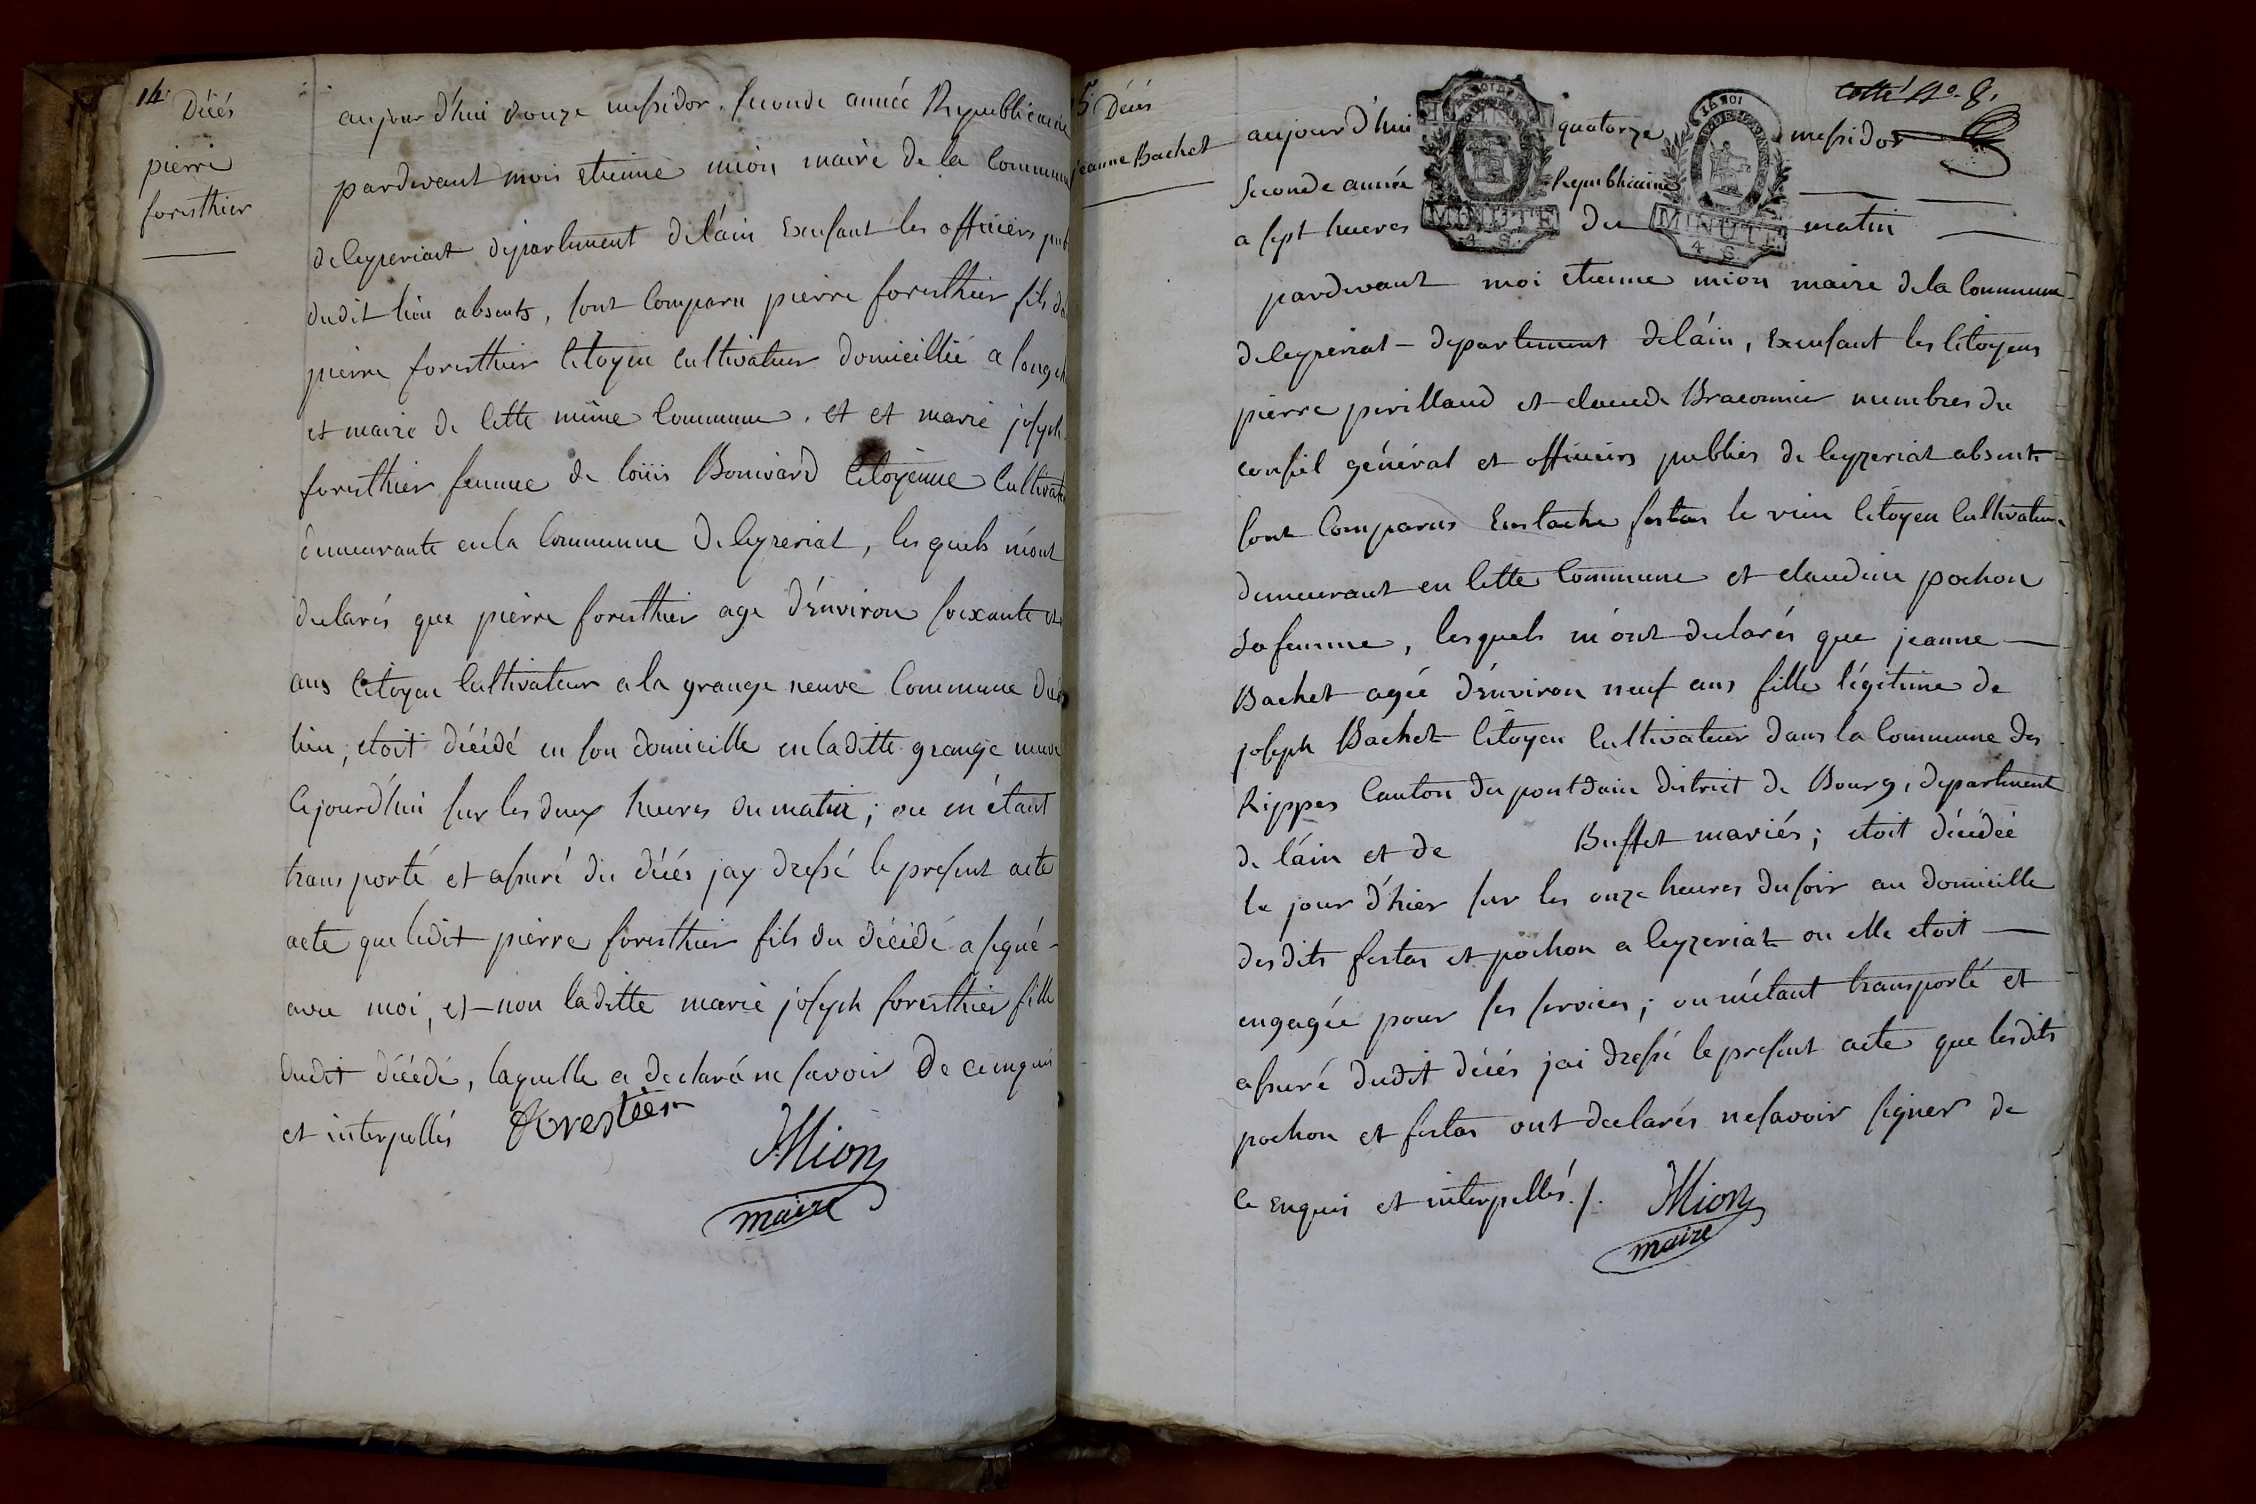 14.
Décés
pierre
foresthier
aujour d'hui douze messidor, seconde année Republicaine
pardevant mois etienne mion maire de la Commune
de Ceyzeriat département de l'ain Excusant les officiers pub
dudit lieu absents, sont Comparu pierre foresthier fils de
pierre foresthier Citoyen Cultivateur domicillié a
et maire de Cette même Commune. et et marie joseph
foresthier femme de loüis Bonivard Citoyenne Cultivat
demeurante en la Commune de Ceyzeriat, les quels m'ont
declarés que pierre foresthier age d'Environ soixante et
ans Citoyen Cultivateur a la grange neuve Commune dud
lieu, etoit décédé en son domicille en laditte grange neuve
Cejourd'hui sur les deux heures du matin; ou m'étant
transporté et assuré du décés jay dressé le present acte
acte que ledit pierre foresthier fils du décédé a signé
avec moi, et non laditte marie joseph foresthier fille
dudit décédé, laquelle a declaré ne savoir de ce enquis
et interpellés forestier
Mion
maire
15.
Décés
jeanne Bachet
Cotté No. 8.
aujourd'hui quatorze messidor
Seconde année Republicaine
a sept heures du matin
MINUTE
4. S.
MINUTE
4. S.
pardevant moi etienne mion maire de la Commune
de Ceyzeriat departement de l'ain, Excusant les Citoyens
pierre perillaud et claude Braconnier membres du
conseil général et officiers publics de Ceyzeriat absents
sont Comparus Eustache festas le vieu Citoyen Cultivateur
demeurant en Cette Commune et claudine pochon
sa femme, lesquels m'ont declarés que jeanne
Bachet agée d'Environ neuf ans fille légitime de
joseph Bachet Citoyen Cultivateur dans la Commune des
Rippes Canton du pontdain district de Bourg, departement
de l'ain et de Buffet mariés; etoit décédée
le jour d'hier sur les onze heures du soir au domicille
desdits festas et pochon a Ceyzeriat ou elle etoit
engagée pour ses services; ou m'étant transporté et
assuré dudit décés jai dressé le present acte que lesdits
pochon et festas ont declarés ne savoir signer de
ce Enquis et interpellés./. Mion
maire